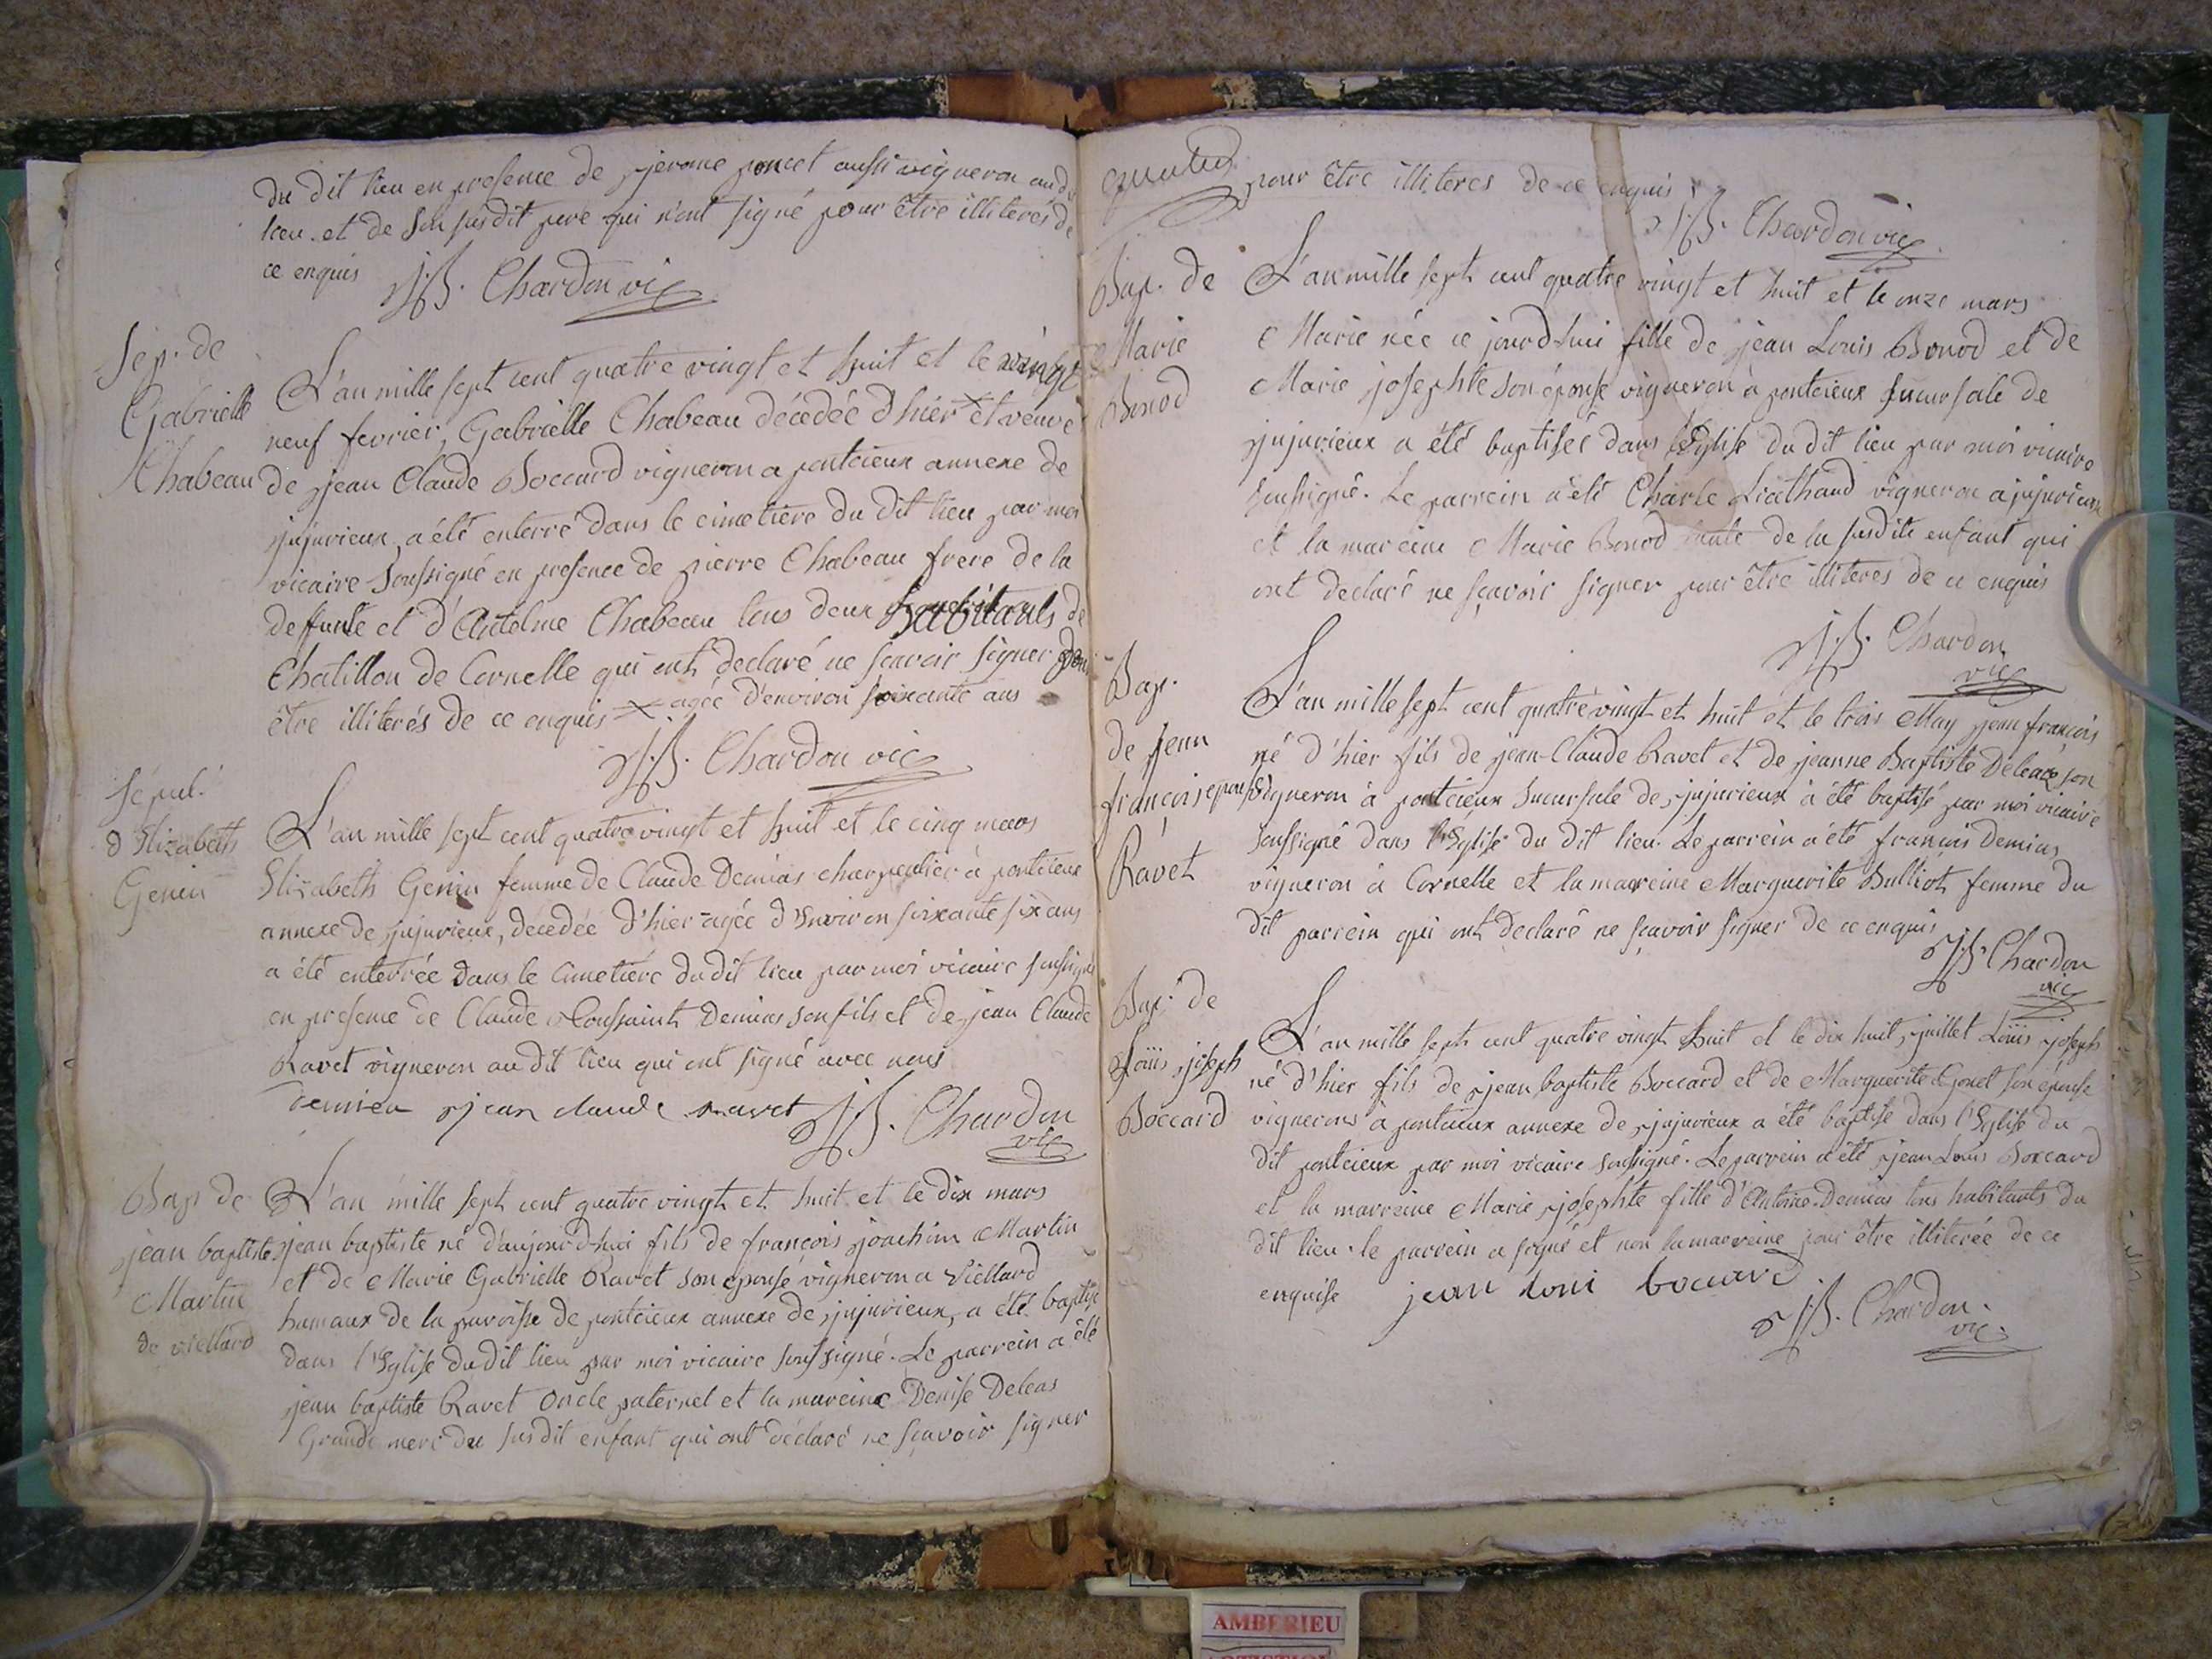 du dit lieu en presence de jerome poncet aussi vigneron au du
lieu et de son susdit pere qui n'ont signé pour être illiterés de
ce enquis J.B. Chardon vic
Sep. de
Gabrielle
Chabeau
L'an mille sept cent quatre vingt et huit et le vingt
neuf fevrier, Gabrielle Chabeau décedée d'hier × et veuve
de jean Claude Boccard vigneron a pontcieux annexe de
jujurieux, a été enterré dans le cimetiere du dit lieu par moi
vicaire soussigné en presence de pierre Chabeau frere de la
deffunte et d'Antelme Chabeau tous deux habitants de
Chatillon de Cornelle qui ont declaré ne scavoir signer pour
être illiterés de ce enquis × agée d'environ soixante ans
J.B. Chardon vic
Sépul.
d'Elizabeth
Genin
L'an mille sept cent quatre vingt et huit et le cinq mars
Elizabeth Genin femme de Claude Demias charpentier à pontcieux
annexe de jujurieux, décedée d'hier agée d'Environ soixante six ans
a été enterrée dans le Cimetiere du dit lieu par moi vicaire soussigné
en presence de Claude Toussaint Demias son fils et de jean Claude
Ravet vigneron au dit lieu qui ont signé avec nous
Demieu jean claude ravet J.B. Chardon
vic
Bap de
jean baptiste
Martin
de viellard
L'an mille sept cent quatre vingt et huit et le dix mars
jean baptiste né d'aujourd'hui fils de françois joachim Martin
et de Marie Gabrielle Ravet son epouse vigneron a Viellard
hamaux de la paroisse de pontcieux annexe de jujurieux, a été baptisé
dans l'Eglise du dit lieu par moi vicaire soussigné. Le parrein a été
jean baptiste Ravet oncle paternel et la mareine Denise Deleas
Grande mere du susdit enfant qui ont déclaré ne sçavoir signer
pour être illiteres de ce enquis
J.B. Chardon vic
Bap. de
Marie
Bonod
L'an mille sept cent quatre vingt et huit et le onze mars
Marie née ce jourd'hui fille de jean Louis Bonod et de
Marie josephte son épouse vigneron à pontcieux sucursale de
jujurieux a été baptisée dans l'Eglise du dit lieu par moi vicaire
soussigné. Le parrein a été Charle Liathaud vigneron a jujurieux
et la mareine Marie Bonod tante de la susdite enfant qui
ont declaré ne sçavoir signer pour être illiteres de ce enquis
J.B. Chardon
vic
Bap.
de jean
françois
Ravet
L'an mille sept cent quatre vingt et huit et le trois May jean françois
né d'hier fils de jean-Claude Ravet et de jeanne Baptiste Deleaze son
epouse vigneron à pontcieux sucursale de jujurieux à été baptisé par moi vicaire
soussigné dans l'Eglise du dit lieu. Le parrein a été françois Demias
vigneron à Cornelle et la mareine Marguerite Bulliot femme du
dit parrein qui ont declaré ne sçavoir signer de ce enquis
J.B. Chardon
vic
Bap. de
Loüis joseph
Boccard
L'an mille sept cent quatre vingt huit et le dix huit juillet Loüis joseph
né d'hier fils de jean baptiste Boccard et de Marguerite Gonet son épouse
vignerons à pontcieux annexe de jujurieux a été baptisé dans l'Eglise du
dit pontcieux par moi vicaire soussigné. Le parrein a été jean Louis Boccard
et la marreine Marie josephte fille d'Antoine Demias tous habitants du
dit lieu. le parrein a signé et non la marreine pour être illiterée de ce
enquise jean loui bocard
J.B. Chardon
vic
AMBERIEU